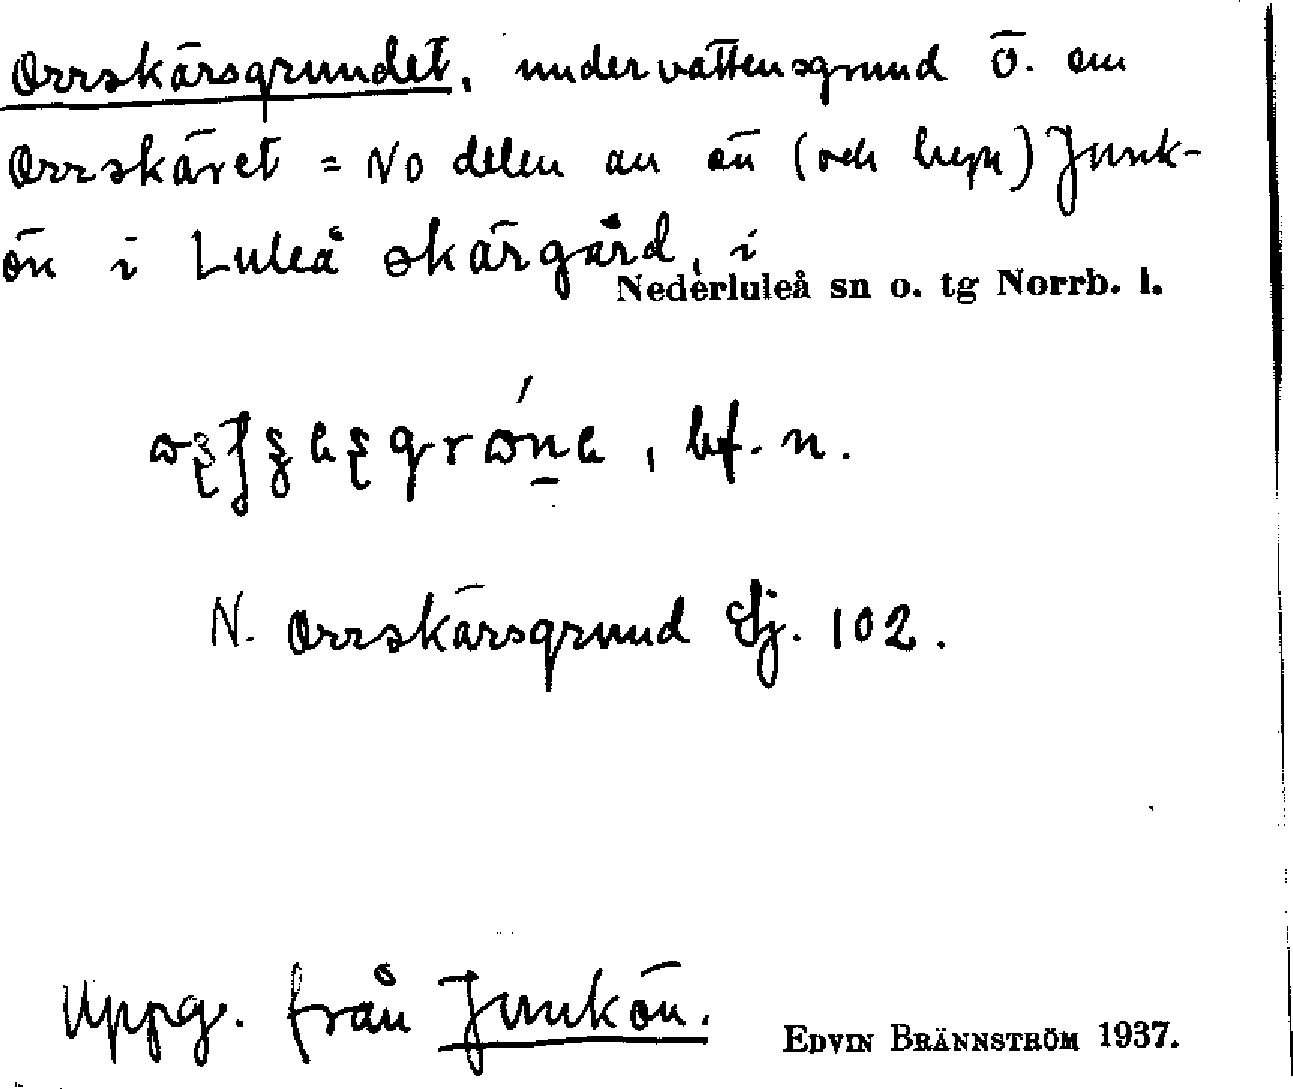 Orrskärsgrundet, undervattensgrund ö. om
Orrskäret = NO delen av ön (och byn) Junk-
ön i Luleå skärgård, i
Nederluleå sn o. tg Norrb. l.
, bf. n.
N. Orrskärsgrund Sj. 102.
Uppg. från Junkön.
EDVIN BRÄNNSTRÖM 1937.